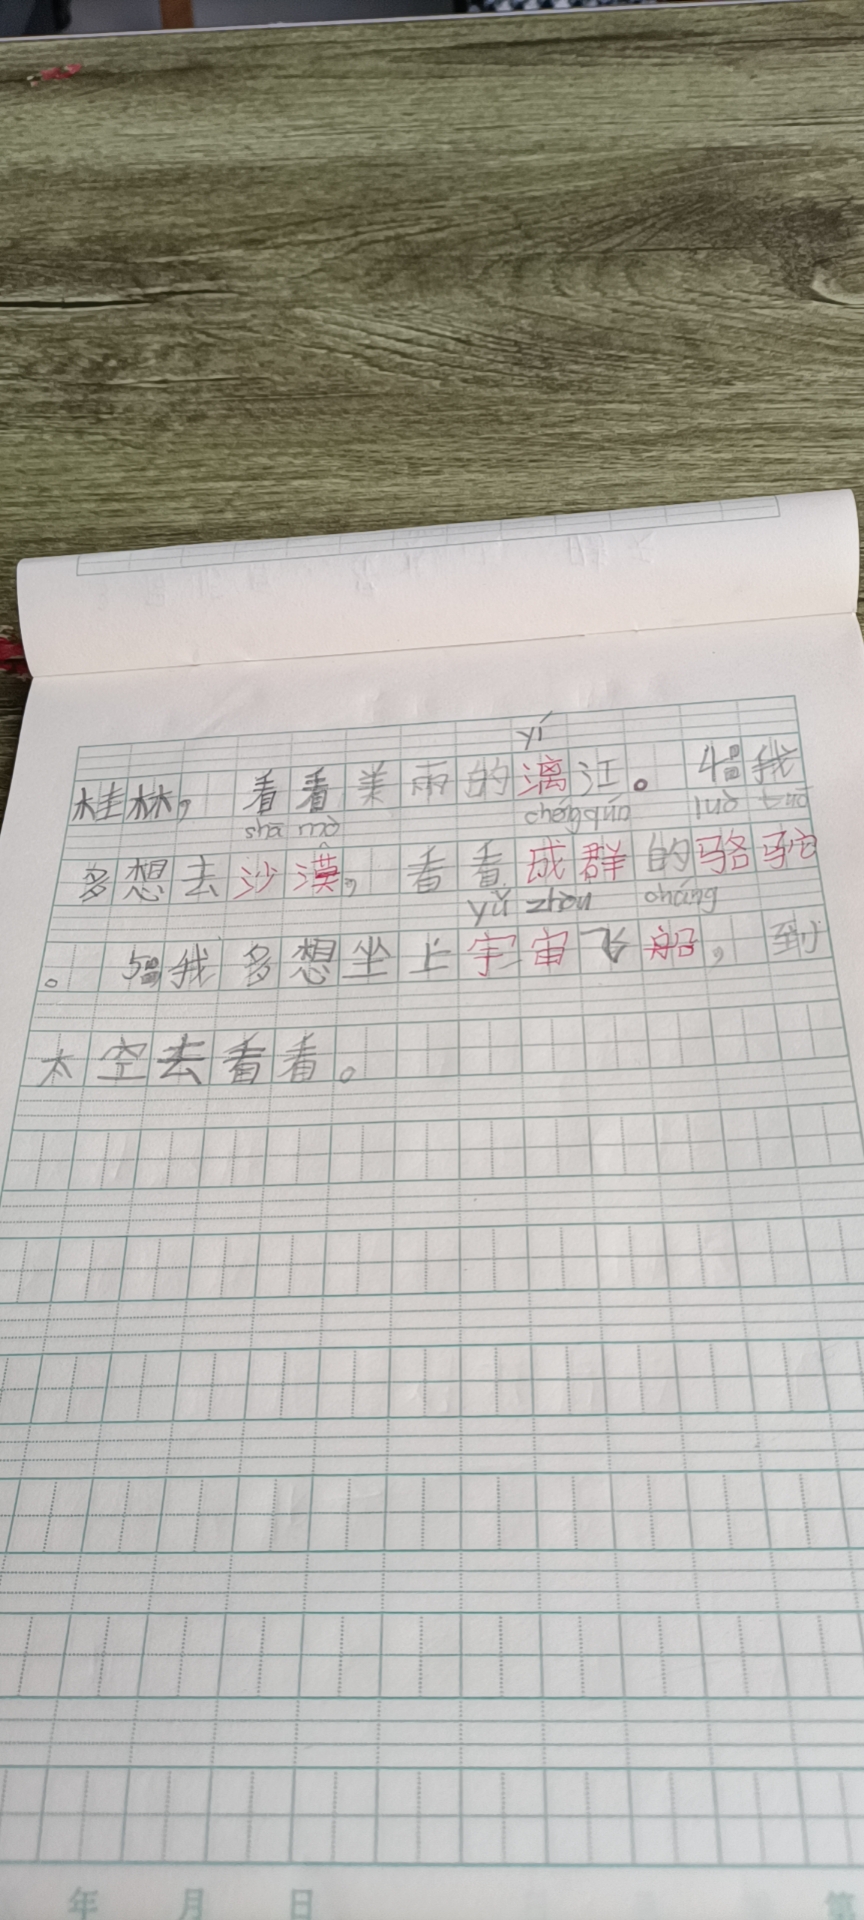 yí
桂林，看看美雨的漓江。4福我
shā mò chéng qún luò tuó
多想去沙漠，看看成群的骆驼
yǔ zhòu cháng
。5福我多想坐上宇宙飞船，到
太空去看看。
年 月 日 第